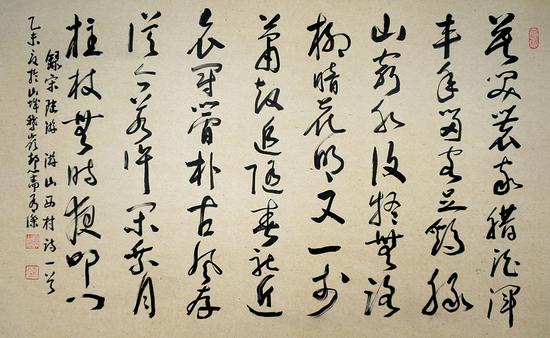 莫笑農家臘酒渾
丰年留客足鷄豚
山窮水復疑無路
柳暗花明又一村
蕭鼓追隨春社近
衣冠簡朴古風存
從今若許閑乘月
柱杖無時夜叩門
錄宋陸游游山西村詩一首
乙未夏於山城鵝嶺